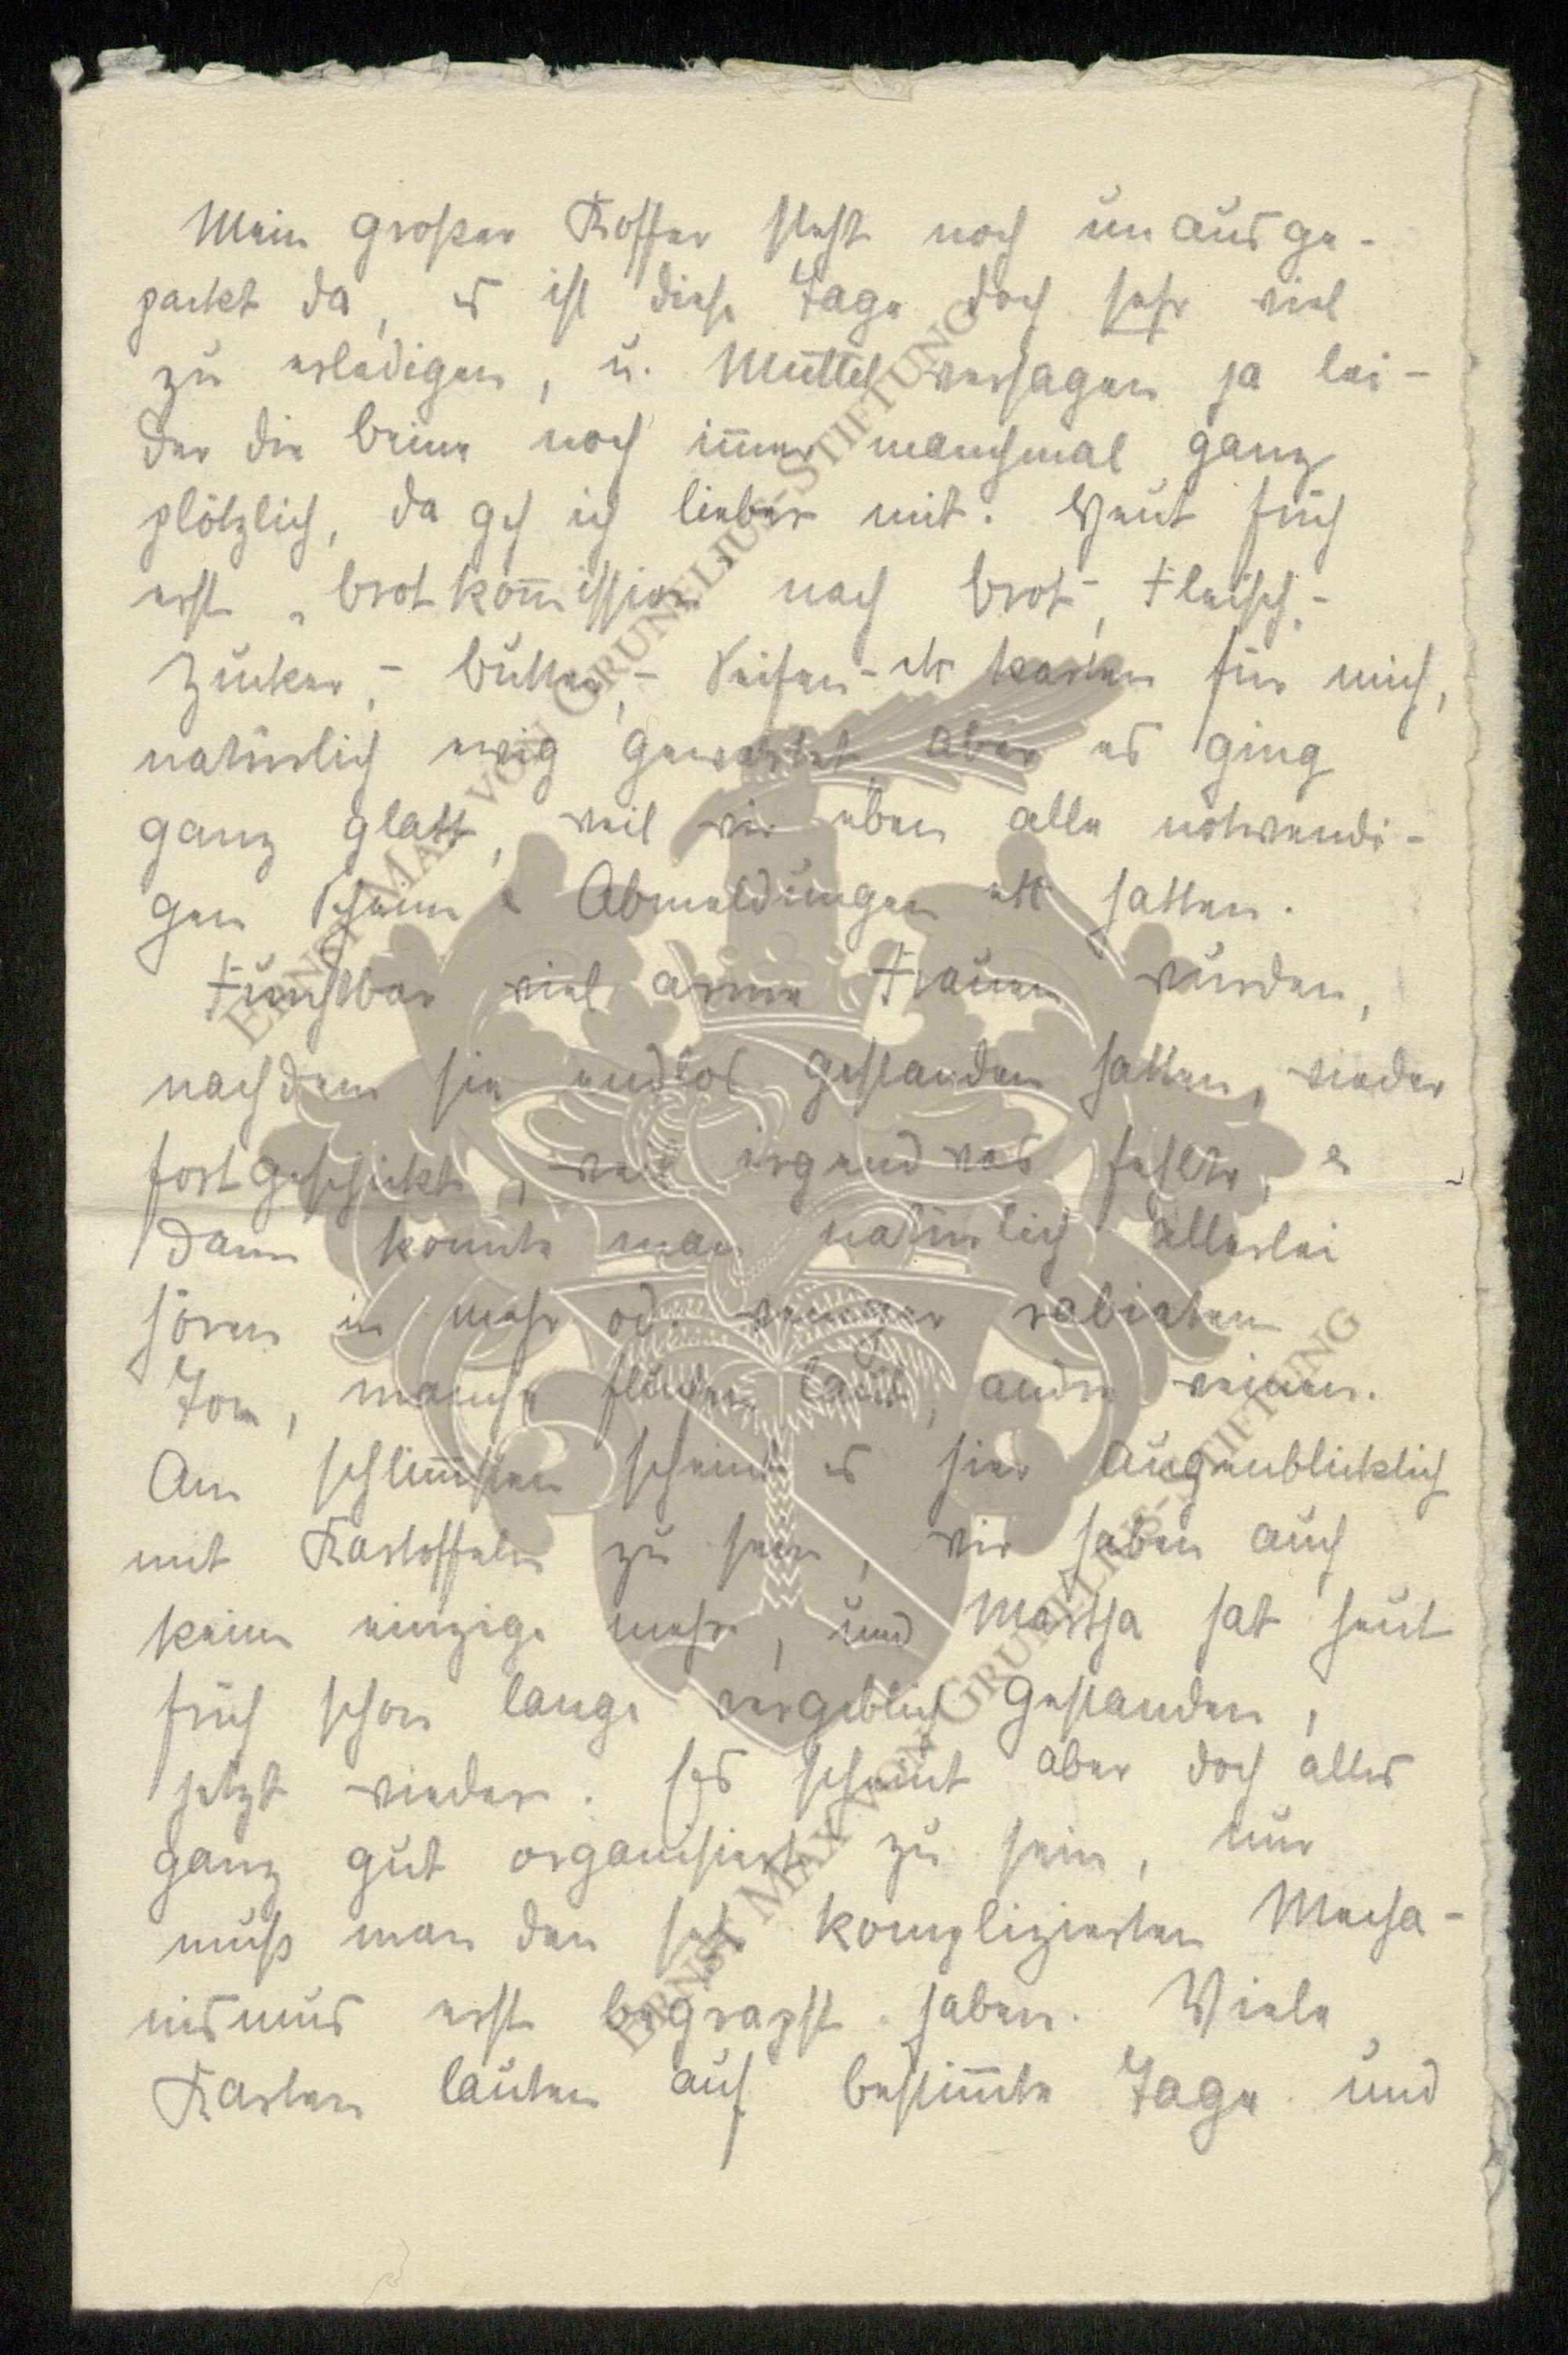 Mein großer Koffer steht noch unausge-
packt da, es ist diese Tage doch sehr viel
zu erledigen, u. Muttel versagen ja lei-
der die Beine noch im̅er manchmal ganz
plötzlich, da geh ich lieber mit. Heut früh
erst Brotkom̅ission nach Brot-, Fleisch,-
Zucker,- Butter,- Seifen- etc karten für mich,
natürlich ewig gewartet, aber es ging
ganz glatt, weil wir eben alle notwendi-
gen Scheine & Abmeldungen etc hatten.
Furchtbar viel arme Frauen wurden,
nachdem sie endlos gestanden hatten, wieder
fortgeschickt, weil irgend was fehlte, &
dann konnte man natürlich allerlei
hören in mehr od. weniger rabiatem
Ton, manche fluchen laut, andre weinen.
Am schlim̅sten scheint es hier augenblicklich
mit Kartoffeln zu sein, wir haben auch
keine einzige mehr, und Martha hat heut
früh schon lange vergeblich gestanden,
jetzt wieder. Es scheint aber doch alles
ganz gut organisiert zu sein, nur
muß man den sehr komplizierten Mecha-
nismus erst begrapst haben. Viele
Karten lauten auf bestim̅te Tage und
ERNST MAX VON GRUNELIUS-STIFTUNG
ERNST MAX VON GRUNELIUS-STIFTUNG